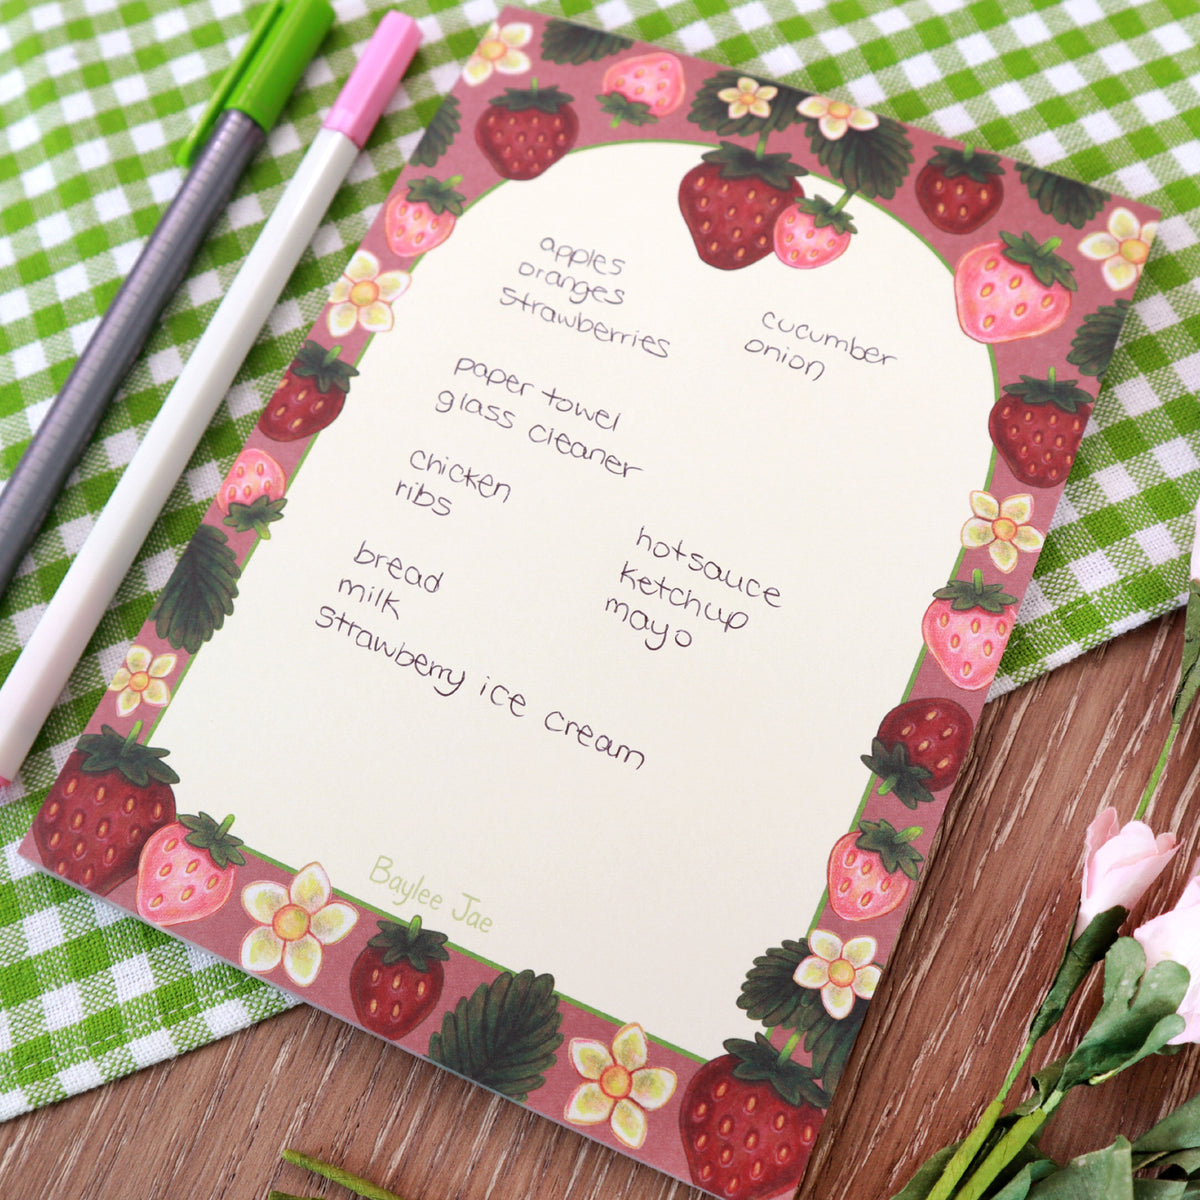 apples
oranges
strawberries
cucumber
onion
paper towel
glass cleaner
chicken
ribs
bread
milk
strawberry ice cream
hotsauce
ketchup
mayo
Baylee Jae